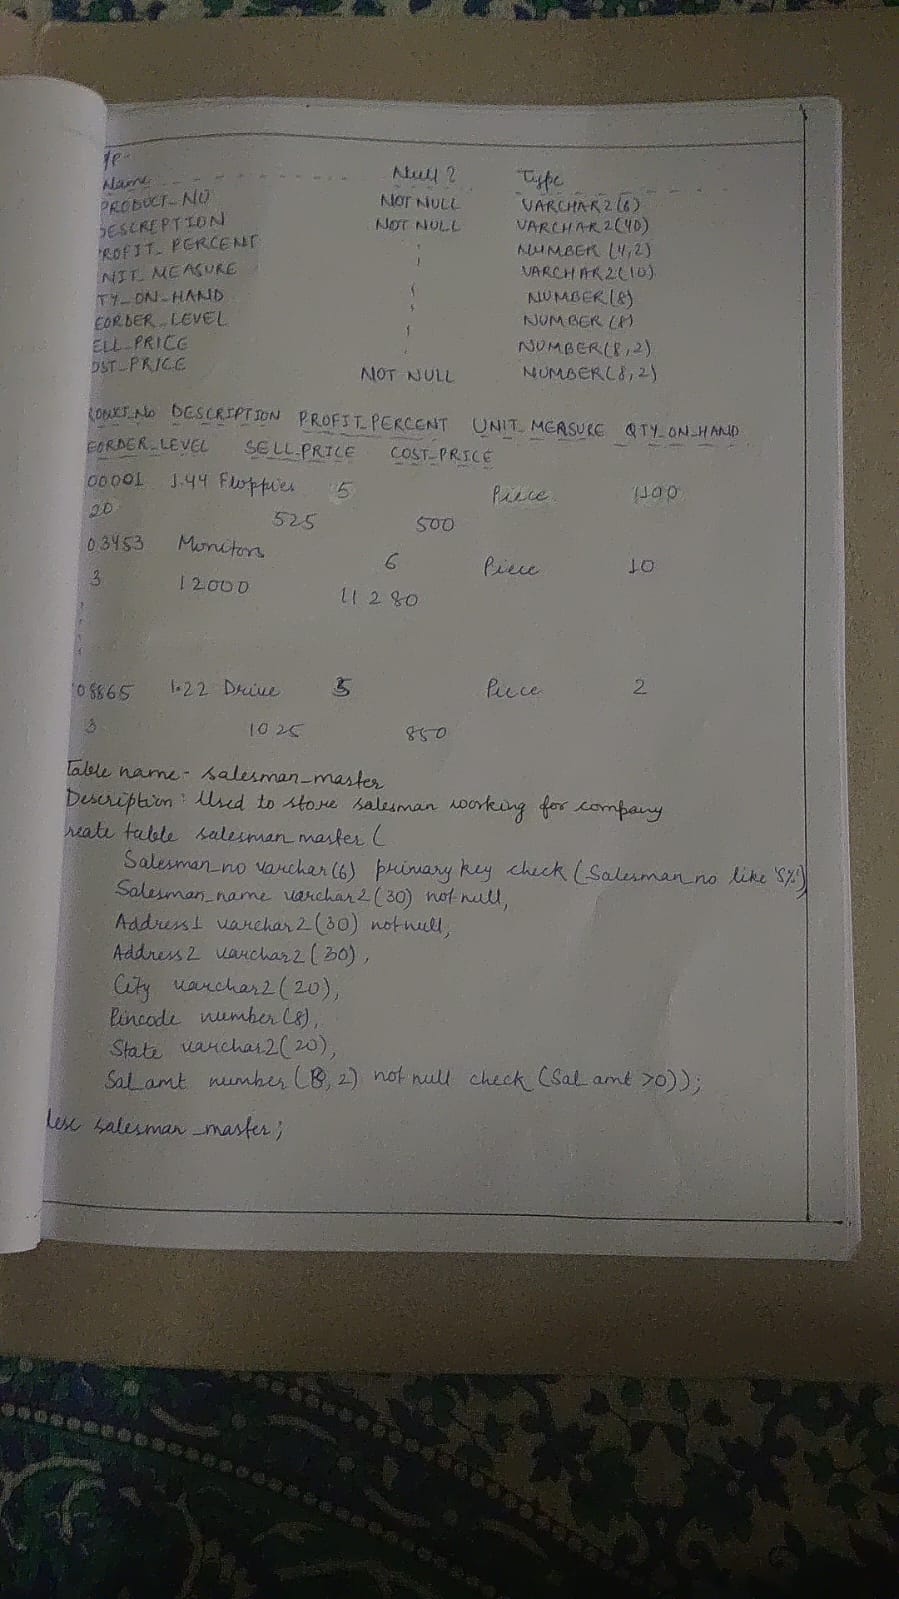 o/p-
Name Null ? Type
PRODUCT_NO NOT NULL VARCHAR2(6)
DESCREPTION NOT NULL VARCHAR2(40)
ROFIT_PERCENT NUMBER (4,2)
NIT_MEASURE VARCHAR2(10)
TY_ON_HAND NUMBER(8)
EORDER_LEVEL NUMBER (8)
ELL_PRICE NUMBER(8,2)
OST_PRICE NOT NULL NUMBER(8,2)
RODUCT_NO DESCRIPTION PROFIT_PERCENT UNIT_MEASURE QTY_ON_HAND
EORDER_LEVEL SELL_PRICE COST_PRICE
00001 1.44 Floppies 5 Piece 1100
20 525 500
03453 Monitors 6 Piece 10
3 12000 11280
08865 1.22 Drive 5 Piece 2
3 1025 850
Table name- salesman_master
Description: Used to store salesman working for company
reate table salesman_master (
Salesman_no varchar(6) primary key check (Salesman_no like 'S%')
Salesman_name varchar2(30) not null,
Address1 varchar2(30) not null,
Address2 varchar2(30),
City varchar2(20),
Pincode number(8),
State varchar2(20),
Sal_amt number(8,2) not null check (Sal_amt >0));
desc salesman_master;